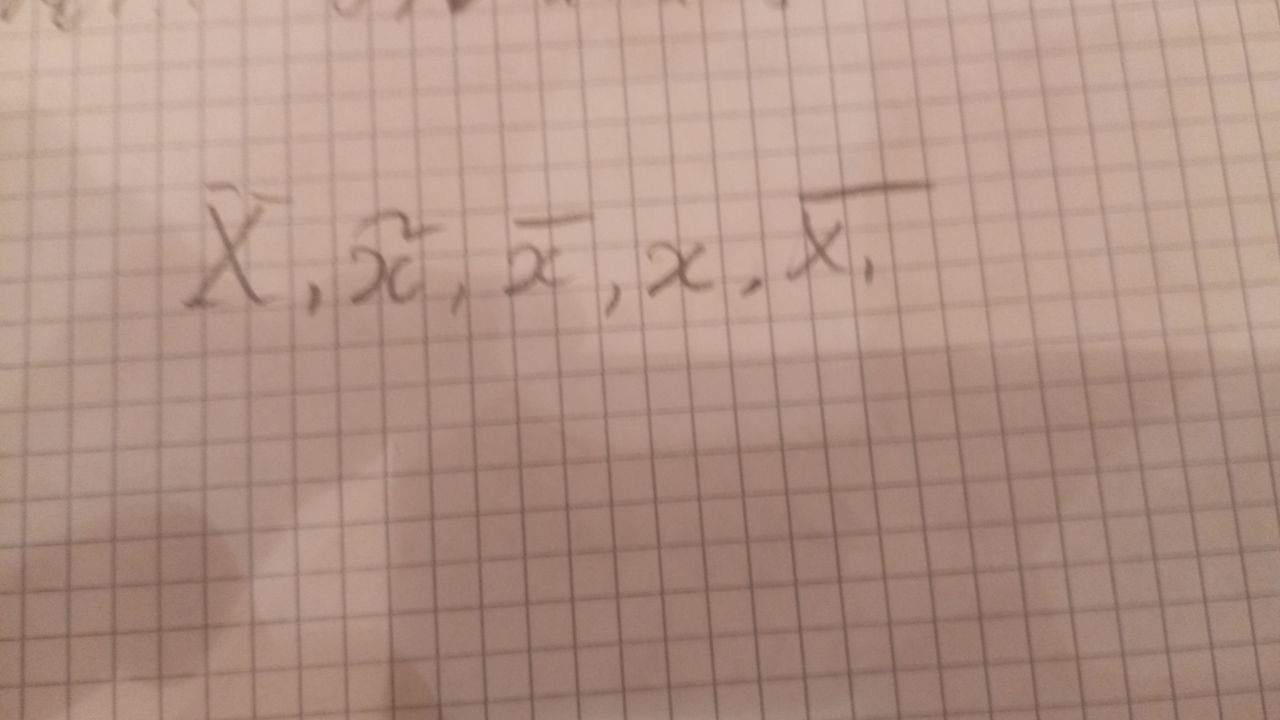 X̃, x̃, x̄, x, X̄,